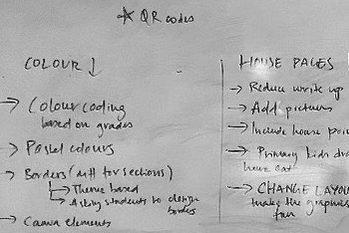 * QR codes
COLOUR ↓
→ Colour coding
based on grades
→ Pastel colours
→ Borders (diff for sections)
↳ Theme based
↳ Asking students to design
borders
→ Canva elements
HOUSE PAGES
→ Reduce write up
→ Add pictures
→ Include house poin
→ Primary kids
have
→ CHANGE LAYOU
make the graphics
fun